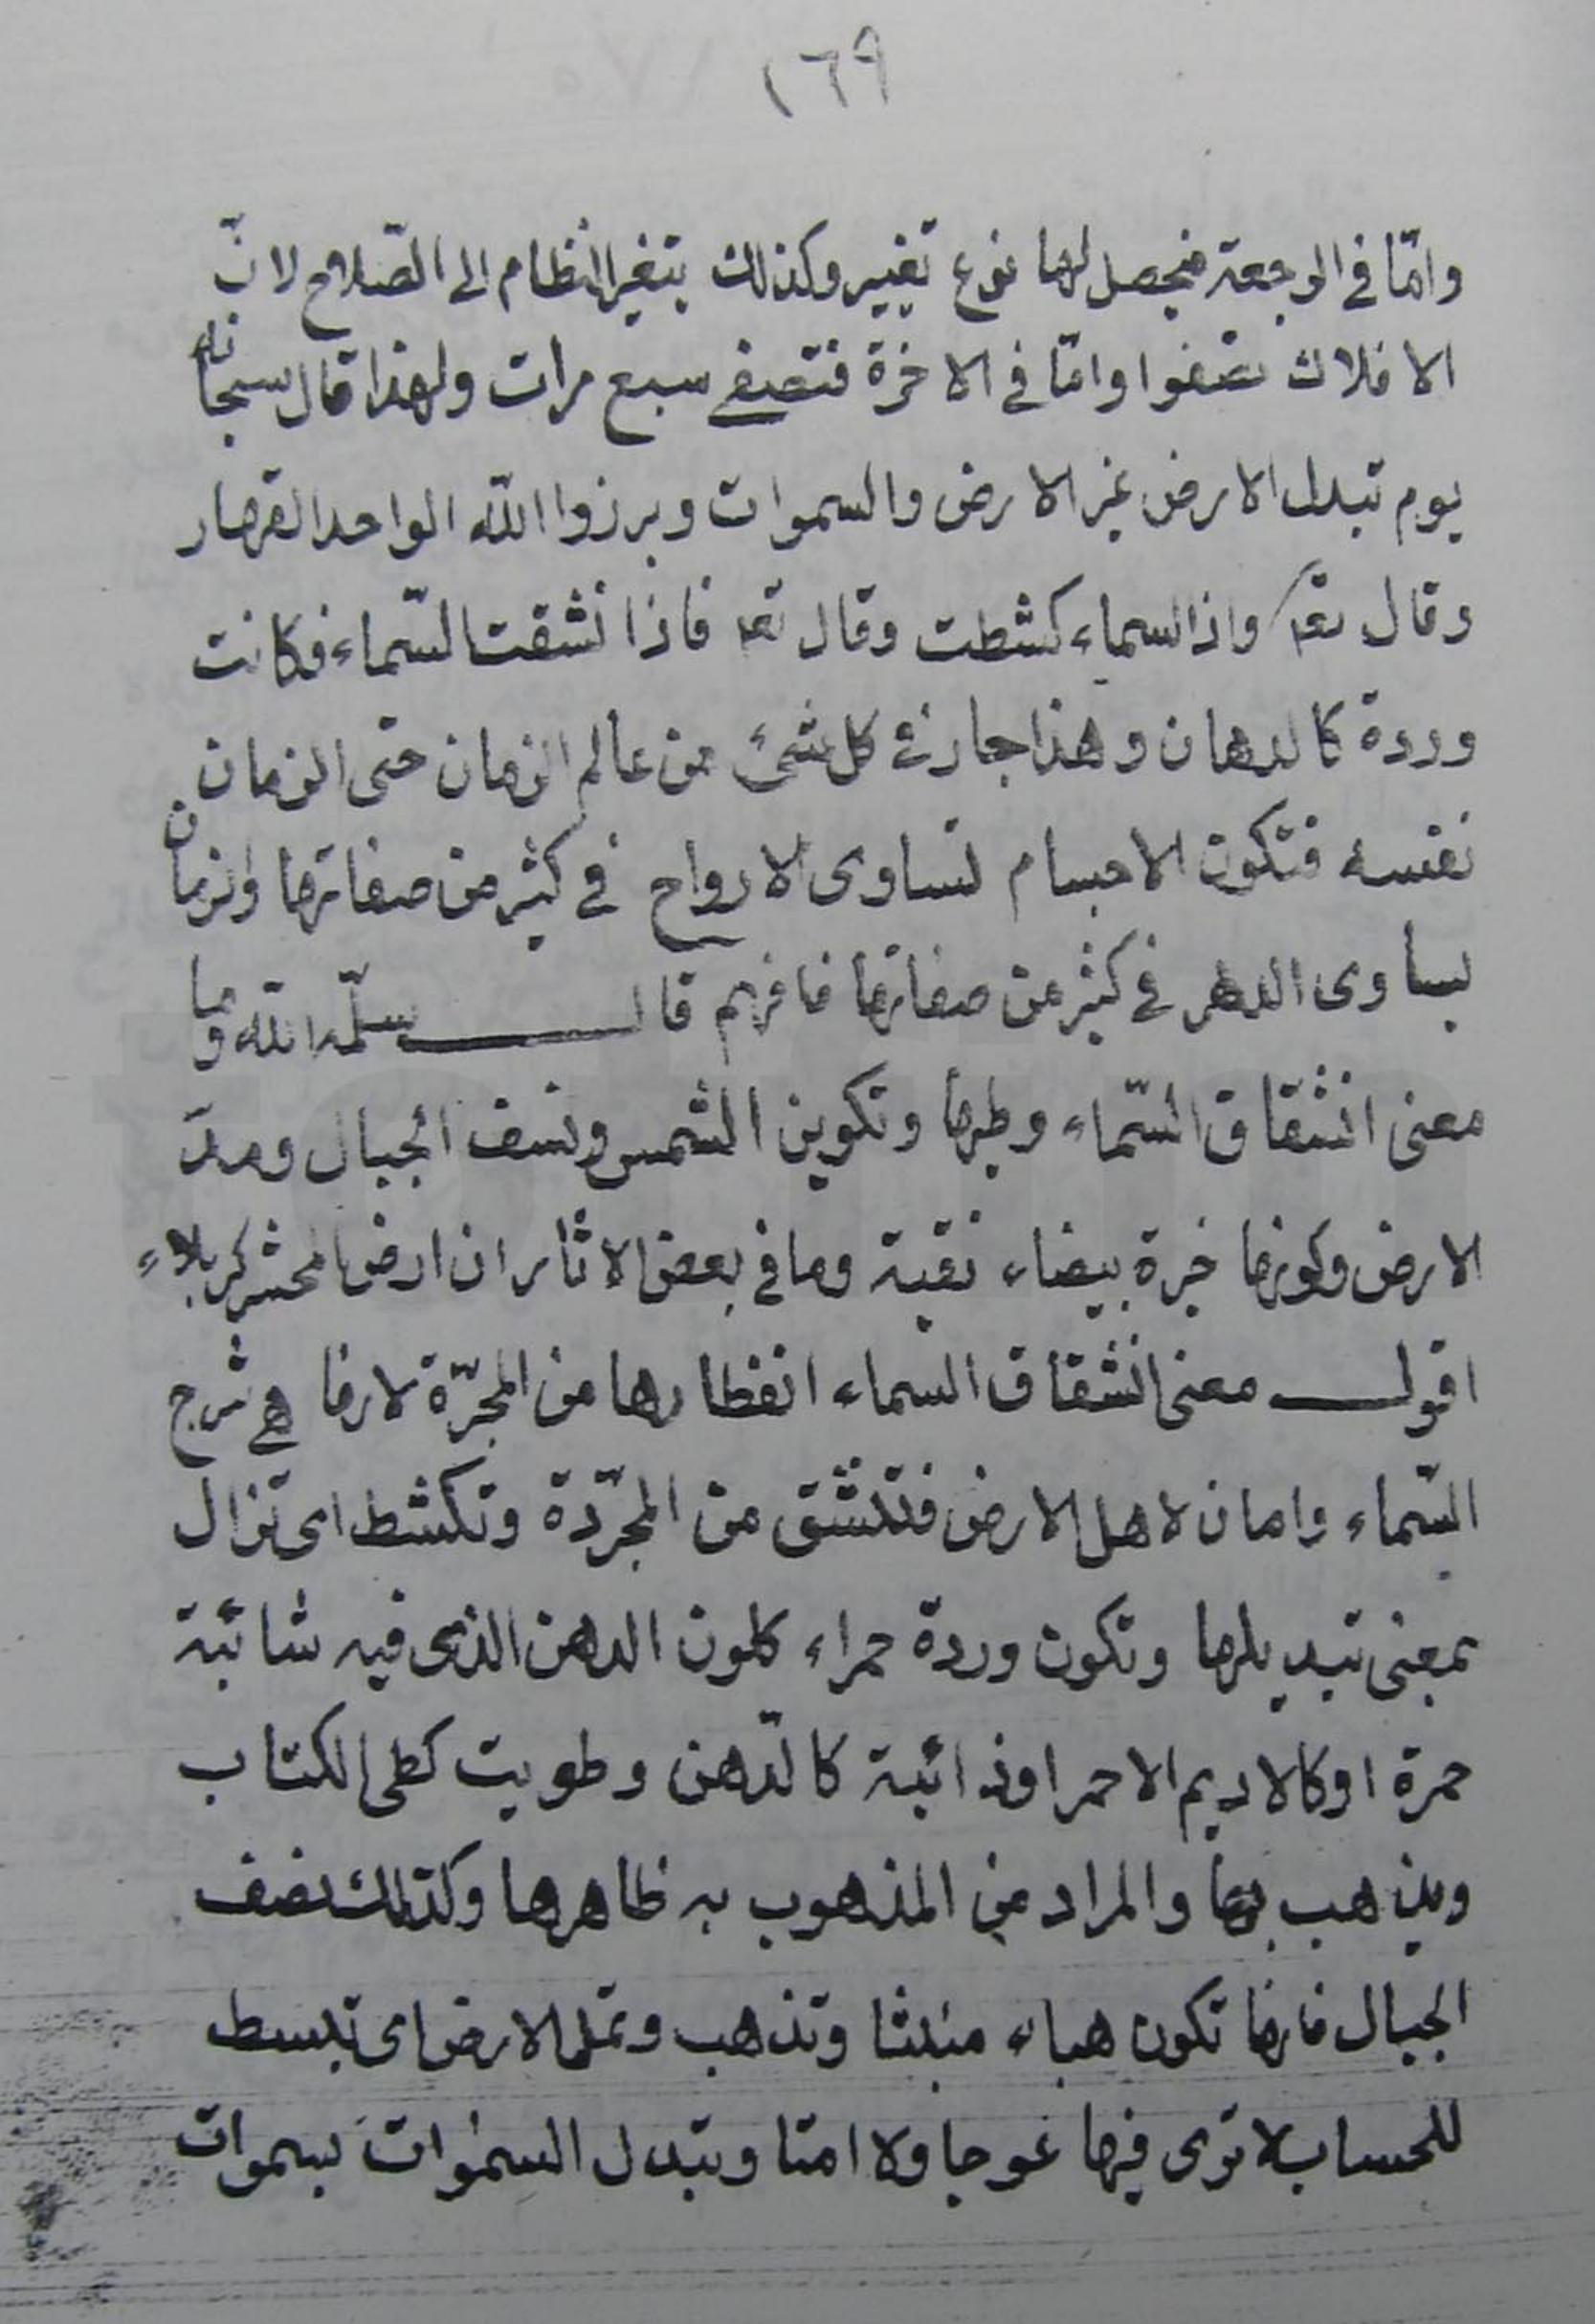 ١٦٩
وامّا في الرجعة فيحصل لها نوع تغيير وكذلك يتغير النظام الى الصّلاح لانّ
الافلاك تصفوا وامّا في الاخرة فتصفى سبع مرات ولهذا قال سبحانه
يوم تبدل الارض غير الارض والسموات وبرزوا الله الواحد القهار
وقال تعا واذا السماء كشطت وقال تعا فاذا انشقت السّماء فكانت
وردة كالدهان وهذا جار في كل شئ من عالم الزمان حتى الزمان
نفسه فتكون الاجسام تساوى الارواح في كثير من صفاتها والزمان
يساوى الدهر في كثير من صفاتها فافهم قال سلّمه الله وما
معنى انشقاق السّماء وطيها وتكوين الشمس ونسف الجبال ومدّ
الارض وكونها خبزة بيضاء نقية وما في بعض الاثار ان ارض المحشر كربلاء
اقول معنى انشقاق السماء انفطارها من المجرّة لانها هي شرج
السّماء وامان لاهل الارض فتنشق من المجرّدة وتكشط اى تزال
بمعنى تبديلها وتكون وردة حمراء كلون الدهن الذى فيه شائبة
حمرة او كالاديم الاحمر او ذائبة كالدّهن وطويت كطى الكتاب
ويذهب بها والمراد من المذهوب به ظاهرها وكذلك نصف
الجبال فانها تكون هباء منبثا وتذهب وتمد الارض اى تبسط
للحساب لا ترى فيها عوجا ولا امتا وتبدل السموات بسموات